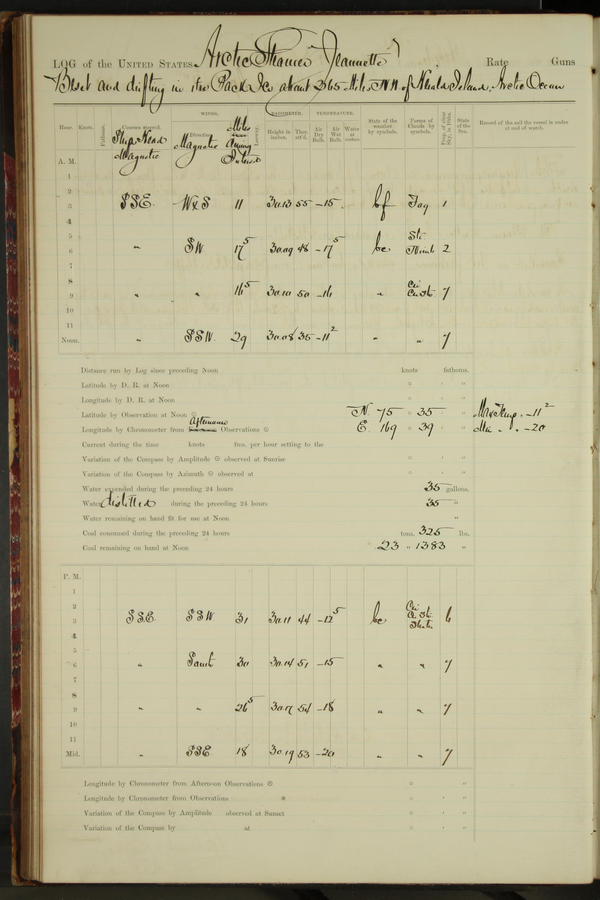 LOG of the UNITED STATES Arctic Steamer "Jeannette" Rate Guns
Beset and drifting in the Pack Ice about 265 Miles N.W. of Herald Island, Arctic Ocean
Hour. Knots. Fathoms. Courses steered. WINDS. BAROMETER. TEMPERATURE. State of the weather by symbols. Forms of Clouds by symbols. Prop. of clear Sky, in 10ths. State of the Sea. Record of the sail the vessel is under at end of watch.
Ship's Head Magnetic Direction Magnetic Miles Leeway. Height in inches. Ther. att'd. Air Dry Bulb. Air Wet Bulb. Water at surface.
A. M.
1
2
3 SSE W x S 11 30.13 55 -15 bf Fog 1
4
5
6 " SW 17 5 30.09 48 -17 5 bc Str. Nimb 2
7
8
9 " " 16 5 30.10 50 -16 " Cir Cir Str 7
10
11
Noon. " SSW 29 30.08 35 -11 2 " " 7
Distance run by Log since preceding Noon knots fathoms.
Latitude by D. R. at Noon
Longitude by D. R. at Noon
Latitude by Observation at Noon N. 75 35 Max Temp. -11 2
Longitude by Chronometer from Afternoon Observations E. 169 39 Min " " -20
Current during the time knots fms. per hour setting to the
Variation of the Compass by Amplitude observed at Sunrise
Variation of the Compass by Azimuth observed at
Water expended during the preceding 24 hours 35 gallons.
Water distilled during the preceding 24 hours 35 "
Water remaining on hand fit for use at Noon "
Coal consumed during the preceding 24 hours tons. 325 lbs.
Coal remaining on hand at Noon 23 " 1383 "
P. M.
1
2
3 SSE SSW 31 30.11 44 -12 5 bc Cir Cir Str Strat. 6
4
5
6 " South 30 30.14 51 -15 " " 7
7
8
9 " " 26 5 30.17 54 -18 " " 7
10
11
Mid. " SSE 18 30.19 53 -20 " " 7
Longitude by Chronometer from Afternoon Observations
Longitude by Chronometer from Observations
Variation of the Compass by Amplitude observed at Sunset
Variation of the Compass by at